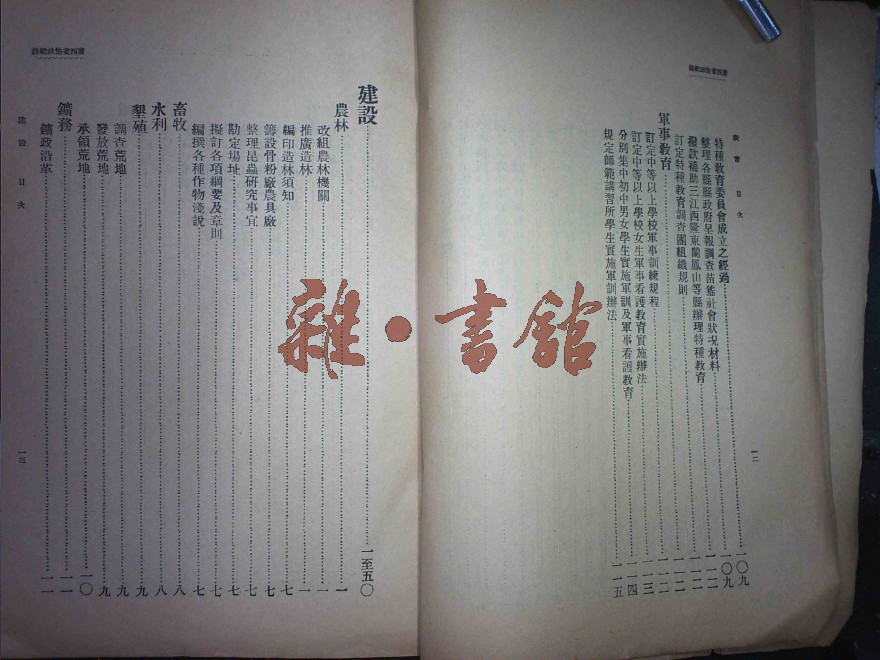 廣西省施政紀錄
教育 目次
一二
特種教育委員會成立之經過……一〇九
整理各縣縣政府呈報調查苗猺社會狀况材料……一一〇
撥欵補助三江西隆東蘭鳳山等縣辦理特種教育……一一二
訂定特種教育調查團組織規則……一一二
軍事教育……一一二
訂定中等以上學校軍事訓練規程……一一三
訂定中等以上學校女生軍事看護教育實施辦法……一一四
分別集中初中男女學生實施軍訓及軍事看護教育……一一四
規定師範講習所學生實施軍訓辦法……一一五
廣西省施政紀錄
建設 目次
一三
建設……一至五〇
農林……一
改組農林機關……一
推廣造林……一
編印造林須知……七
籌設骨粉廠農具廠……七
整理昆蟲研究事宜……七
勘定場址……七
擬訂各項綱要及章則……七
編撰各種作物淺說……七
畜牧……八
水利……八
墾殖……九
調查荒地……九
發放荒地……九
承領荒地……一〇
鑛務……一一
鑛政沿革……一一
雜·書館